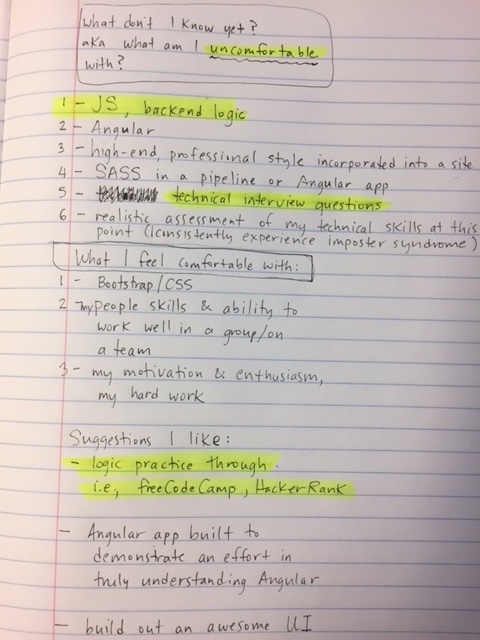 What don't I know yet?
aka what am I uncomfortable
with?
1 - JS, backend logic
2 - Angular
3 - high-end, professional style incorporated into a site
4 - SASS in a pipeline or Angular app
5 - technical interview questions
6 - realistic assessment of my technical skills at this
point (I consistently experience imposter syndrome)
What I feel comfortable with:
1 - Bootstrap/CSS
2 - my people skills & ability to
work well in a group/on
a team
3 - my motivation & enthusiasm,
my hard work
Suggestions I like:
- logic practice through
i.e., freeCodeCamp, HackerRank
- Angular app built to
demonstrate an effort in
truly understanding Angular
- build out an awesome UI